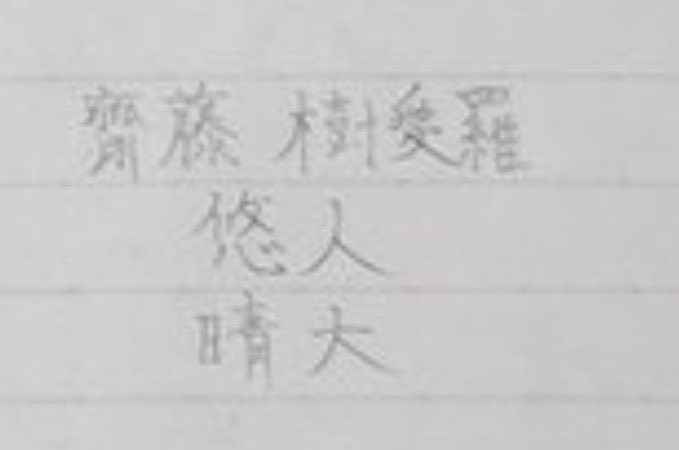 齋藤 樹愛羅
悠人
晴大